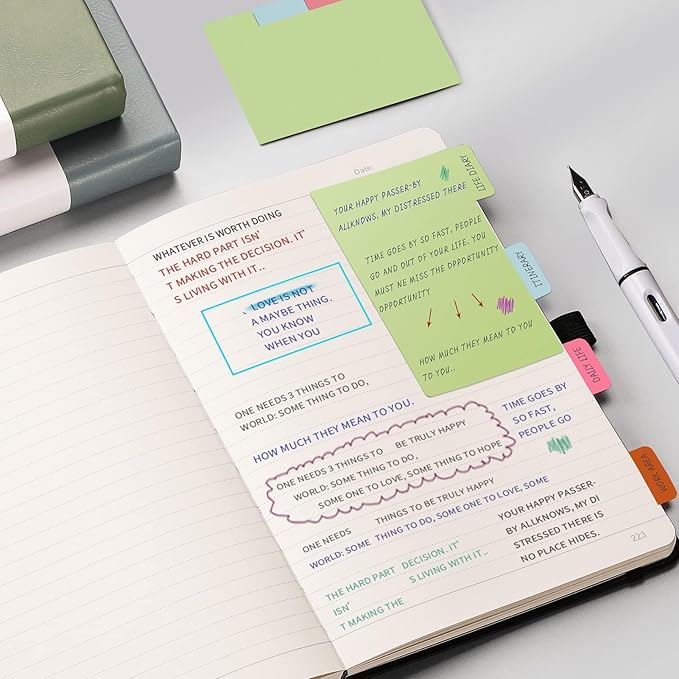 Date:
WHATEVER IS WORTH DOING
THE HARD PART ISN'
T MAKING THE DECISION. IT'
S LIVING WITH IT..
LOVE IS NOT
A MAYBE THING.
YOU KNOW
WHEN YOU
ONE NEEDS 3 THINGS TO
WORLD: SOME THING TO DO,
HOW MUCH THEY MEAN TO YOU.
ONE NEEDS 3 THINGS TO BE TRULY HAPPY
WORLD: SOME THING TO DO,
SOME ONE TO LOVE, SOME THING TO HOPE
THINGS TO BE TRULY HAPPY
ONE NEEDS
WORLD: SOME THING TO DO, SOME ONE TO LOVE, SOME
THE HARD PART DECISION. IT'
ISN' S LIVING WITH IT..
T MAKING THE
YOUR HAPPY PASSER-BY
ALLKNOWS, MY DISTRESSED THERE
TIME GOES BY SO FAST, PEOPLE
GO AND OUT OF YOUR LIFE. YOU
MUST NE MISS THE OPPORTUNITY
OPPORTUNITY
HOW MUCH THEY MEAN TO YOU
TO YOU..
TIME GOES BY
SO FAST,
PEOPLE GO
YOUR HAPPY PASSER-
BY ALLKNOWS, MY DI
STRESSED THERE IS
NO PLACE HIDES.
223
LIFE DIARY
ITINERARY
DAILY LIFE
WORK AREA